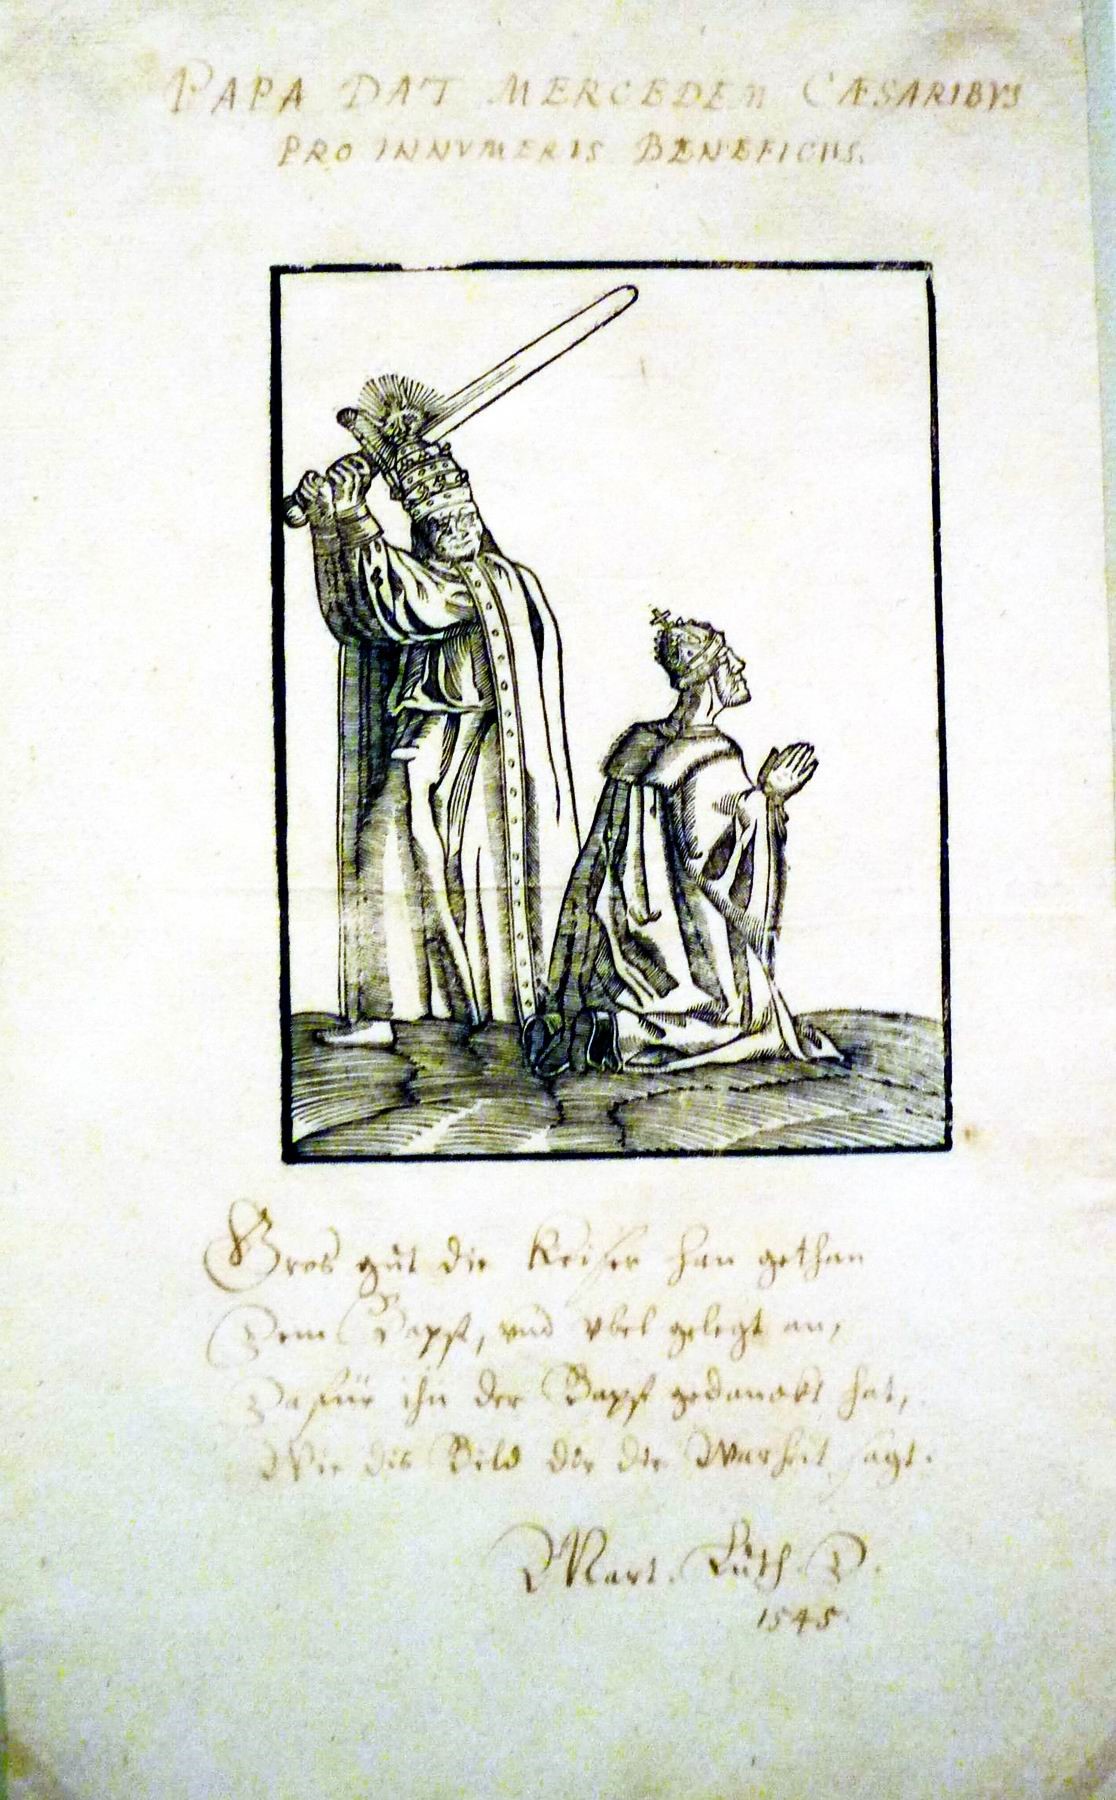 PAPA DAT MERCEDEM CÆSARIBVS
PRO INNVMERIS BENEFICIIS.
Gros gut die Keiser han gethan
Dem Bapst, vnd vbel gelegt an,
Dafür ihn der Bapst gedanckt hat,
Wie dis Bild dir die Warheit sagt.
Mart. Luth. D.
1545.